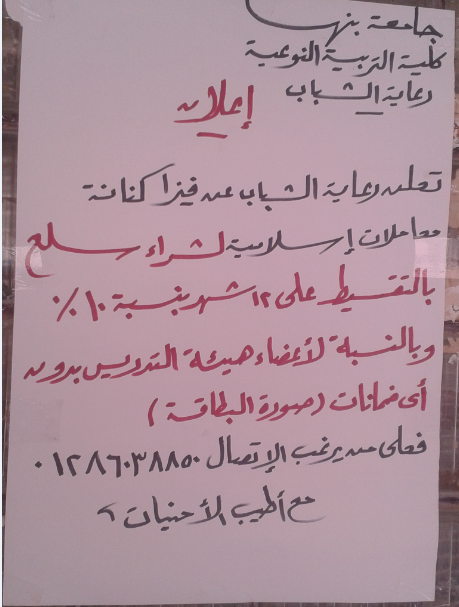 جامعة بنها
كلية التربية النوعية
رعاية الشباب
إعلان
تعلن رعاية الشباب عن فيزا كنانة
معاملات إسلامية لشراء سلع
بالتقسيط على ١٢ شهر بنسبة ١٠٪
وبالنسبة لأعضاء هيئة التدريس بدون
أى ضمانات (صورة البطاقة)
فعلى من يرغب الإتصال ٠١٢٨٦٠٣٨٨٥٠
مع أطيب الأمنيات